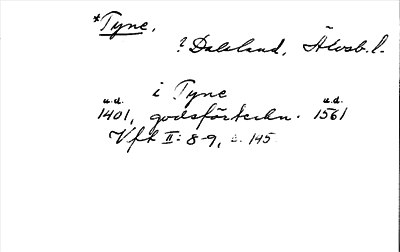 *Tyne.
? Dalsland, Älvsb. l.
i Tyne
u.d. u.d.
1401, godsförteckn. 1561
Vfk II: 8-9, s. 145